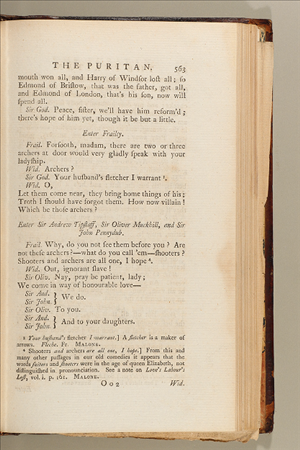 THE PURITAN. 563
mouth won all, and Harry of Windſor loſt all; ſo
Edmond of Briſtow, that was the father, got all,
and Edmond of London, that's his ſon, now will
ſpend all.
Sir God. Peace, ſiſter, we'll have him reform'd;
there's hope of him yet, though it be but a little.
Enter Frailty.
Frail. Forſooth, madam, there are two or three
archers at door would very gladly ſpeak with your
ladyſhip.
Wid. Archers?
Sir God. Your huſband's fletcher I warrant ³.
Wid. O,
Let them come near, they bring home things of his;
Troth I ſhould have forgot them. How now villain!
Which be thoſe archers?
Enter Sir Andrew Tipſtaff, Sir Oliver Muckhill, and Sir
John Pennydub.
Frail. Why, do you not ſee them before you? Are
not theſe archers?—what do you call 'em—ſhooters?
Shooters and archers are all one, I hope ⁴.
Wid. Out, ignorant ſlave!
Sir Oliv. Nay, pray be patient, lady;
We come in way of honourable love—
Sir And. } We do.
Sir John. }
Sir Oliv. To you.
Sir And. } And to your daughters.
Sir John. }
³ Your huſband's fletcher I warrant.] A fletcher is a maker of
arrows. Fleche. Fr. MALONE.
⁴ Shooters and archers are all one, I hope.] From this and
many other paſſages in our old comedies it appears that the
words ſuitors and ſhooters were in the age of queen Elizabeth, not
diſtinguiſhed in pronounciation. See a note on Love's Labour's
Loſt, vol. i. p. 161. MALONE.
O o 2 Wid.